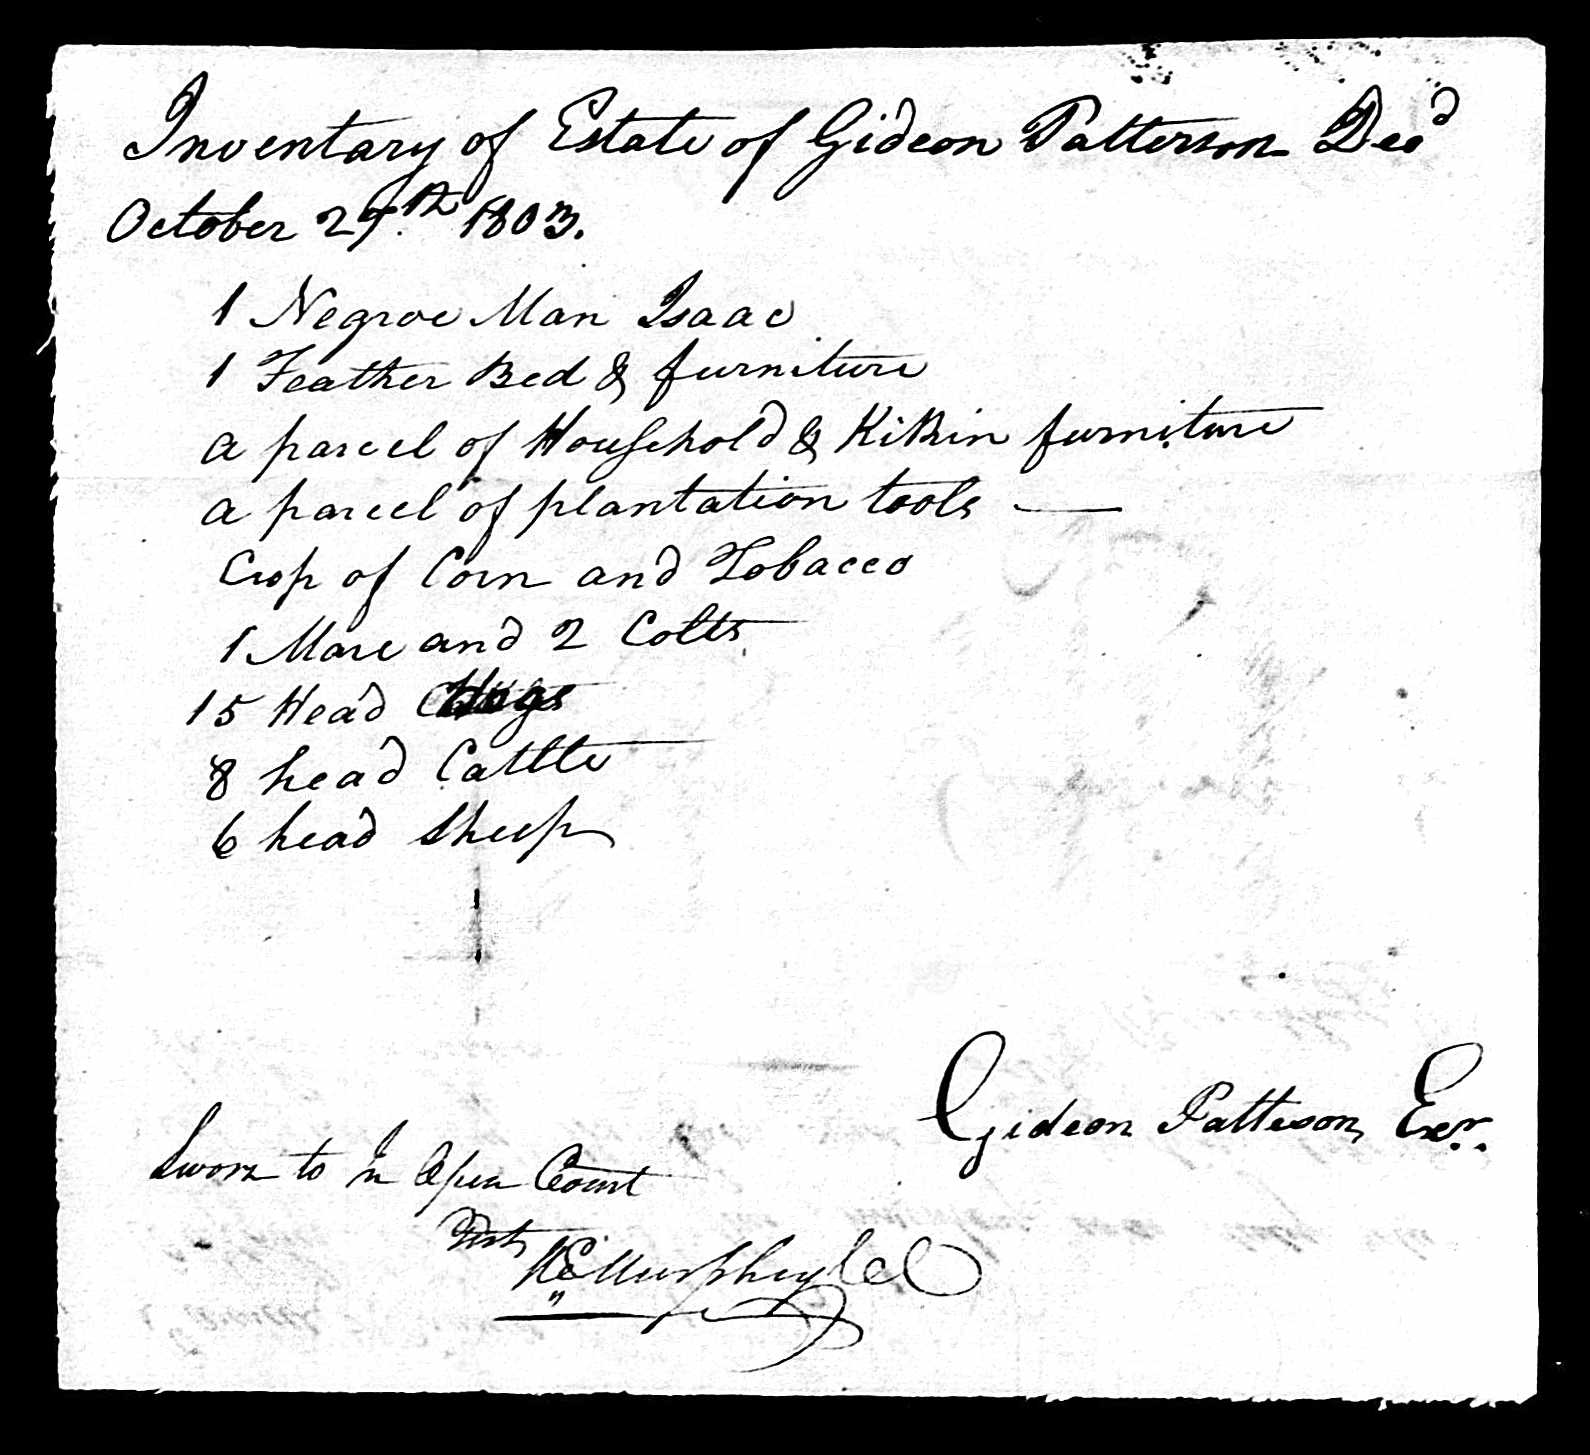 Inventary of Estate of Gideon Patterson Decd
October 27.th 1803.
1 Negroe Man Isaac
1 Feather Bed & furniture
a parcel of Household & Kitkin furniture
a parcel of plantation tools —
Crop of Corn and Tobacco
1 Mare and 2 Colts
15 Head Hogs
8 head Cattle
6 head Sheep
Gideon Patteson, Exr.
Sworn to In Open Court
Test
Murphey